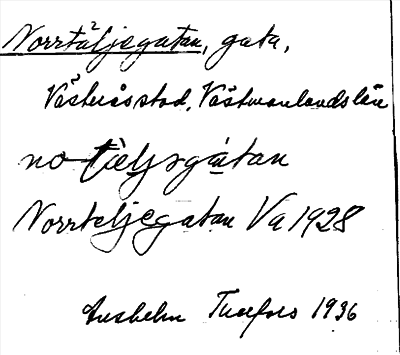 Norrtäljegatan, gata,
Västerås stad, Västmanlands län
no täljsgatan
Norrteljegatan Va 1928
Anshelm Tunfors 1936